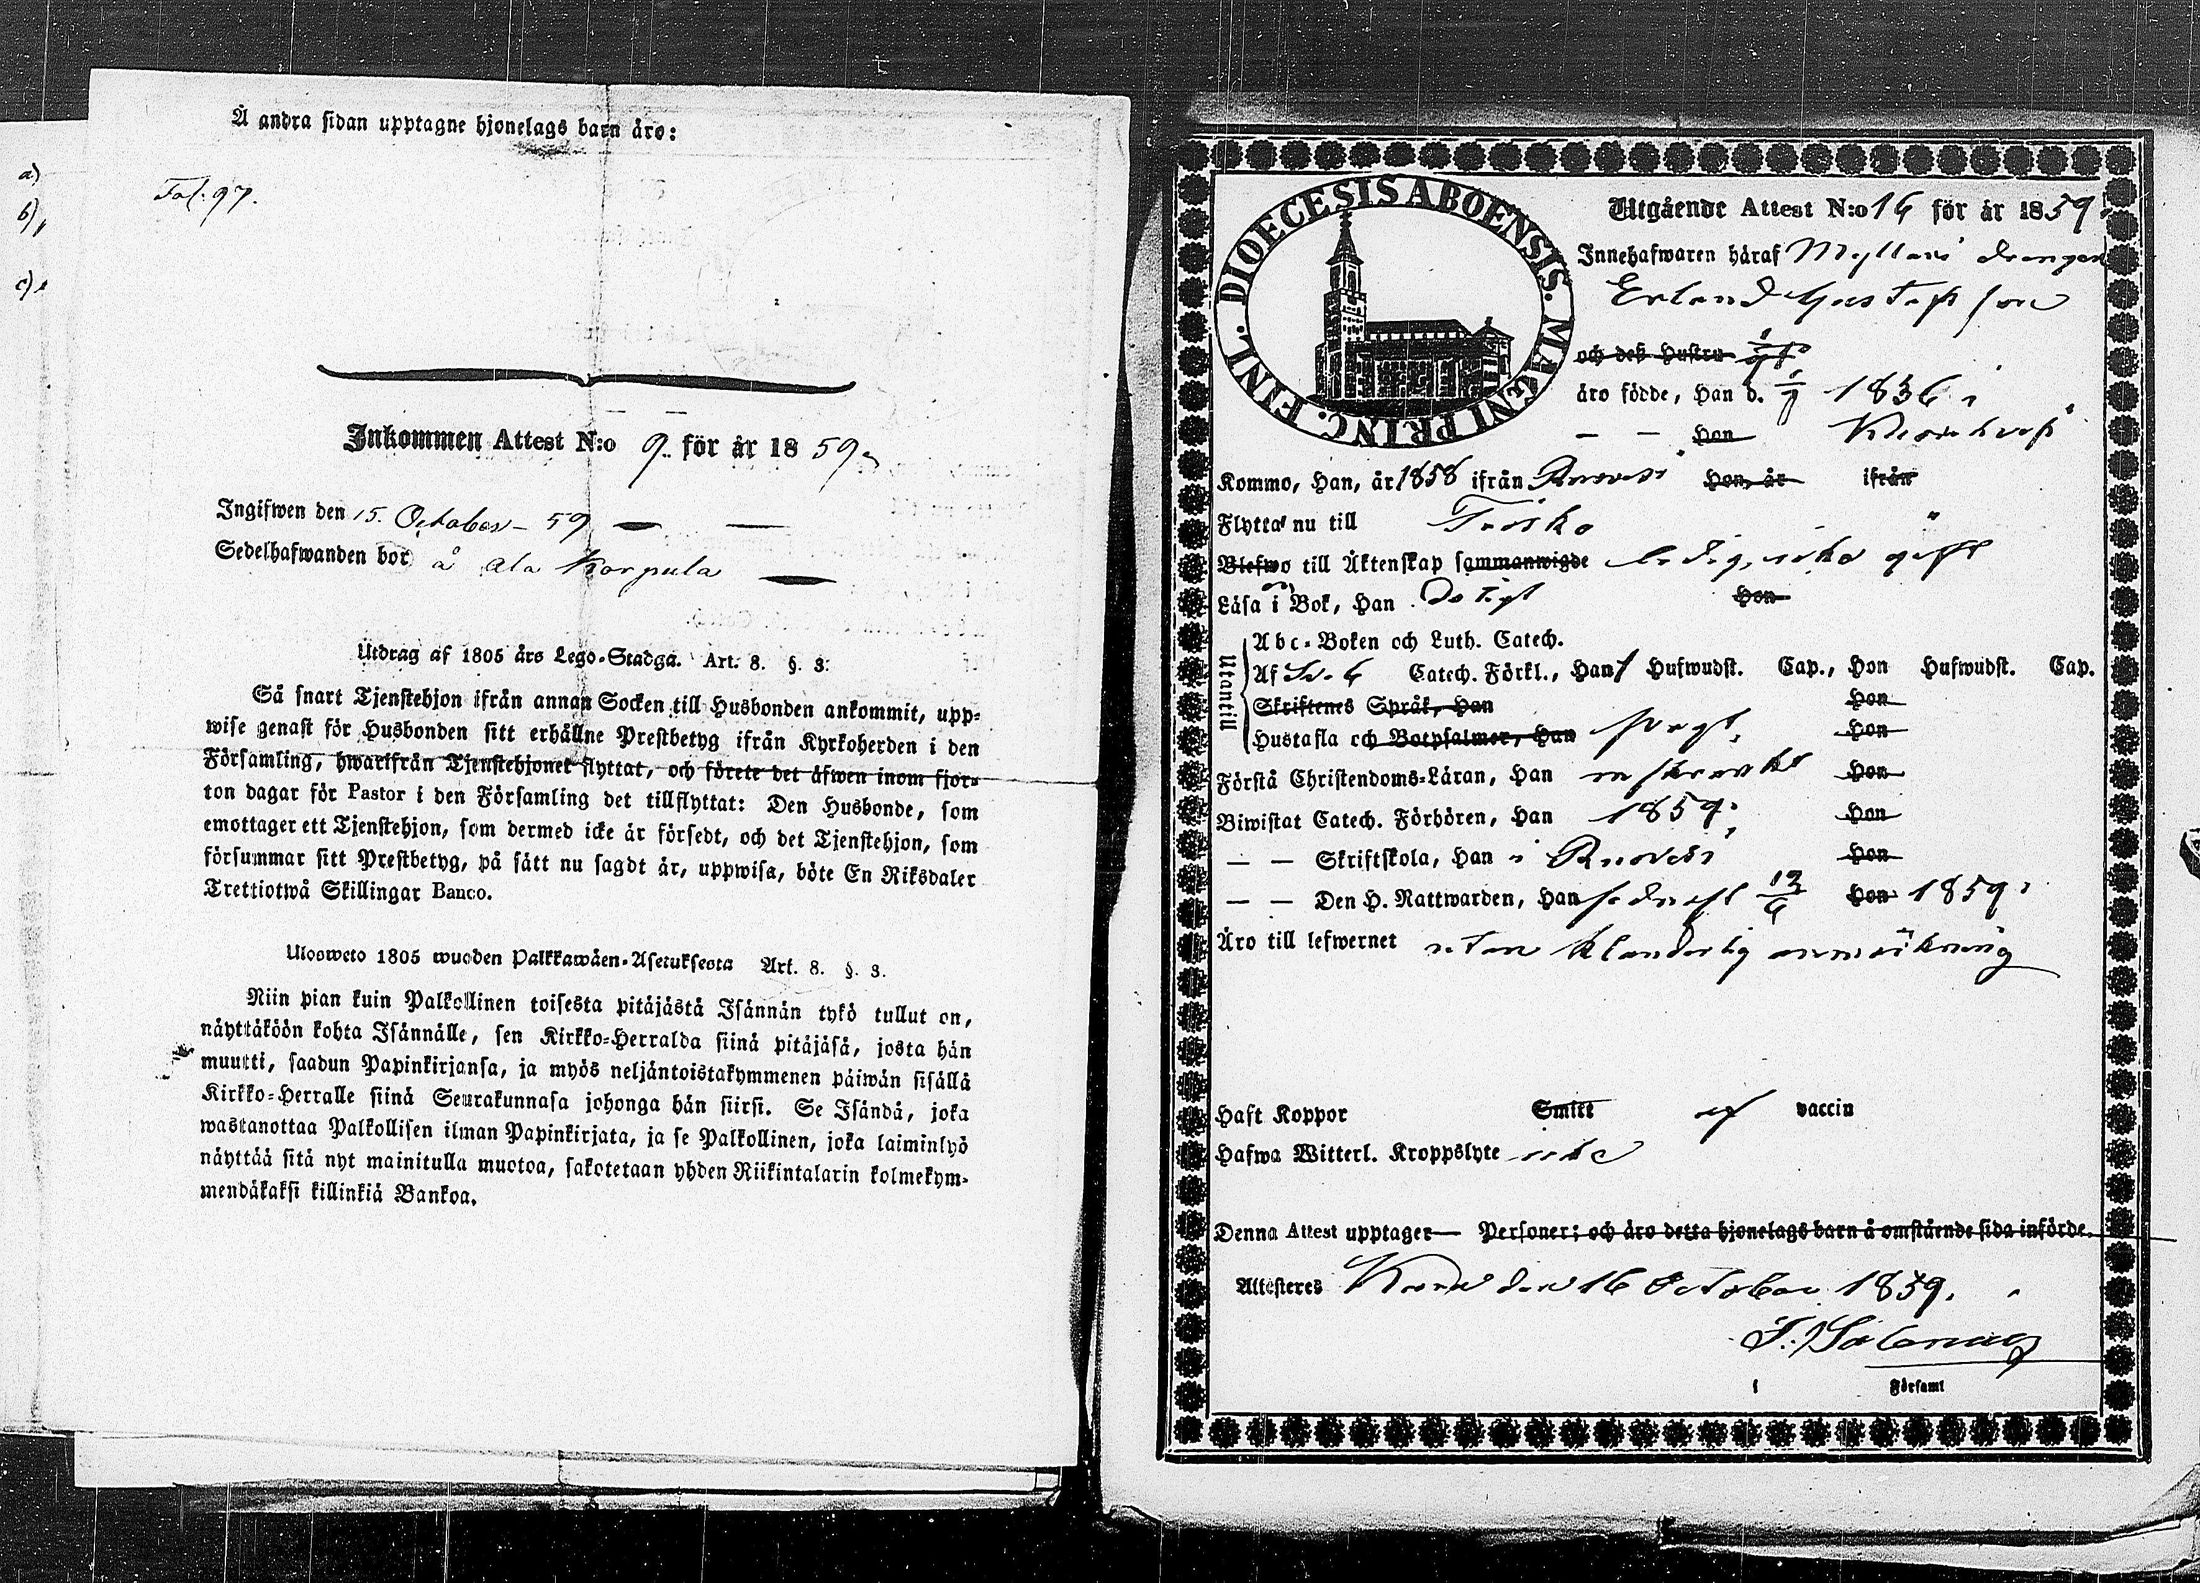 Å andra sidan upptagne hjonelags barn äro:
a)
b)
c)
Fol. 97.
Inkommen Attest N:o 9. för år 1859.
Ingifwen den 15. October 59
Sedelhafwanden bor å Ala Korpula
Utdrag af 1805 års Lego-Stadga. Art. 8. §. 3:
Så snart Tjenstehjon ifrån annan Socken till Husbonden ankommit, upp-
wise genast för Husbonden sitt erhållne Prestbetyg ifrån Kyrkoherden i den
Församling, hwarifrån Tjenstehjonet flyttat, och förete det äfwen inom fjor-
ton dagar för Pastor i den Församling det tillflyttat: Den Husbonde, som
emottager ett Tjenstehjon, som dermed icke är försedt, och det Tjenstehjon, som
försummar sitt Prestbetyg, på sätt nu sagdt är, uppwisa, böte En Riksdaler
Trettiotwå Skillingar Banco.
Ulosweto 1805 wuoden Palkkawäen-Asetuksesta Art. 8. §. 3.
Niin pian kuin Palkollinen toisesta pitäjästä Isännän tykö tullut on,
näyttäköön kohta Isännälle, sen Kirkko-Herralda siinä pitäjäsä, josta hän
muutti, saadun Papinkirjansa, ja myös neljäntoistakymmenen päiwän sisällä
Kirkko-Herralle siinä Seurakunnasa johonga hän siirsi. Se Isändä, joka
wastanottaa Palkollisen ilman Papinkirjata, ja se Palkollinen, joka laiminlyö
näyttää sitä nyt mainitulla muotoa, sakotetaan yhden Riikintalarin kolmekym-
mendäkaksi killinkiä Bankoa.
DIOECESIS ABOENSIS. MAGNI PRINC. FINL.
Utgående Attest N:o 16 för år 1859.
Innehafwaren häraf drengen
Erland Gustafsson
och deß Hustru
äro födde, Han d. 1836 i
— — Hon
Kommo, Han, år 1858 ifrån Ruovesi Hon, år ifrån
Flytta nu till
Blefwo till Äktenskap sammanwigde ledig, icke gift
Läsa i Bok, Han Hon
Utantill
Abc-Boken och Luth. Catech.
Af Catech. Förkl., Han Hufwudst. Cap., Hon Hufwudst. Cap.
Skriftenes Språk, Han Hon
Hustafla och Botpsalmer, Han Hon
Förstå Christendoms-Läran, Han Hon
Biwistat Catech. Förhören, Han 1859. Hon
— — Skriftskola, Han i Ruovesi Hon
— — Den H. Nattwarden, Han sednast Hon 1859.
Äro till lefwernet utan klanderlig anmärkning
Haft Koppor Smitt af vaccin
Hafwa Witterl. Kroppslyte icke
Denna Attest upptager — Personer; och äro detta hjonelags barn å omstående sida införde.
Attesteres den 16 October 1859.
i Församl